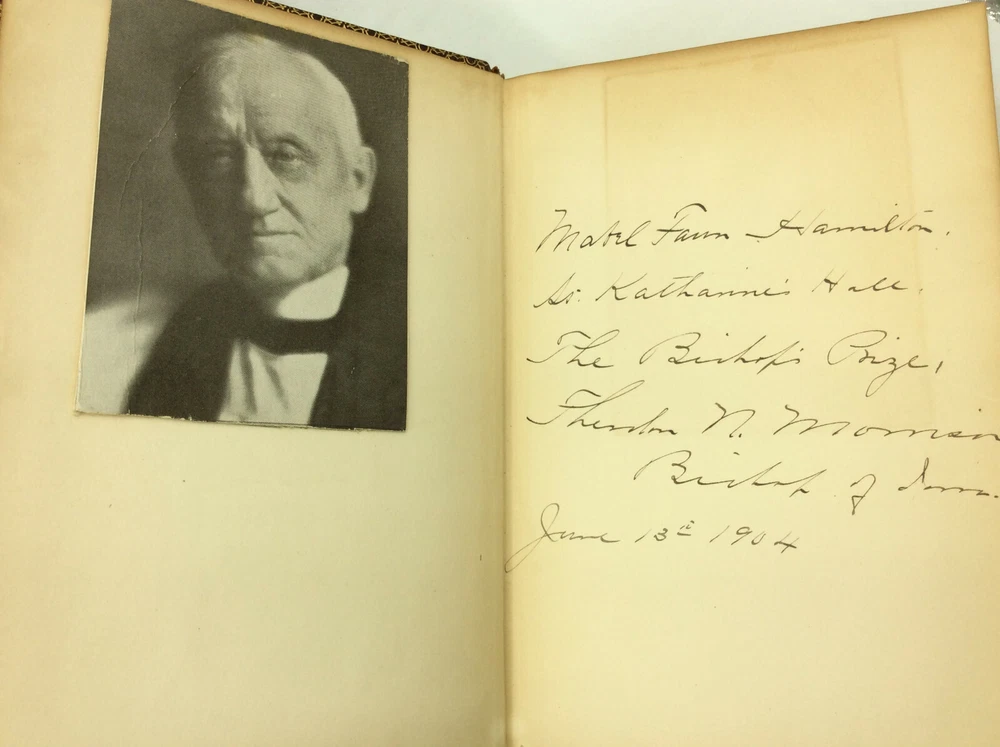 Mabel Fawn Hamilton.
St. Katharine's Hall.
The Bishop's Prize,
Theodore N. Morrison
Bishop of Iowa.
June 13th 1904